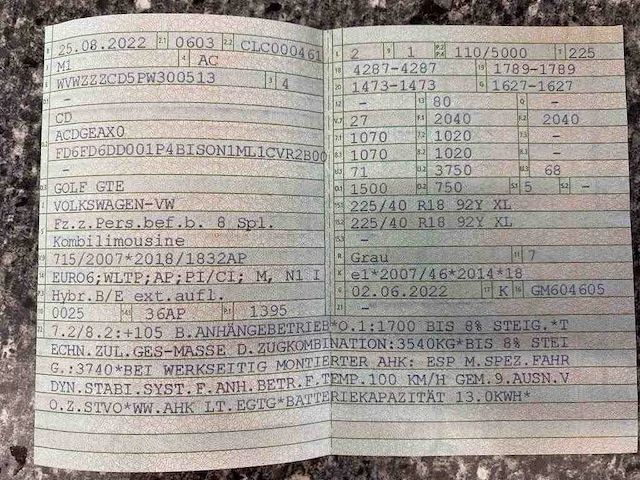 25.08.2022 0603 CLC000461
M1 AC
WVWZZZCD5PW300513 4
–
CD
ACDGEAX0
FD6FD6DD001P4BISON1ML1CVR2B00
–
GOLF GTE
VOLKSWAGEN-VW
Fz.z.Pers.bef.b. 8 Spl.
Kombilimousine
715/2007*2018/1832AP
EURO6;WLTP;AP;PI/CI; M, N1 I
Hybr.B/E ext.aufl.
0025 36AP 1395
2 1 110/5000 225
4287-4287 1789-1789
1473-1473 1627-1627
– 80 –
27 2040 2040
1070 1020 –
1070 1020 –
71 3750 68
1500 750 5 –
225/40 R18 92Y XL
225/40 R18 92Y XL
–
Grau 7
e1*2007/46*2014*18
02.06.2022 K GM604605
–
7.2/8.2:+105 B.ANHÄNGEBETRIEB*O.1:1700 BIS 8% STEIG.*T
ECHN.ZUL.GES-MASSE D.ZUGKOMBINATION:3540KG*BIS 8% STEI
G.:3740*BEI WERKSEITIG MONTIERTER AHK: ESP M.SPEZ.FAHR
DYN.STABI.SYST.F.ANH.BETR.F.TEMP.100 KM/H GEM.9.AUSN.V
O.Z.STVO*WW.AHK LT.EGTG*BATTERIEKAPAZITÄT 13.0KWH*